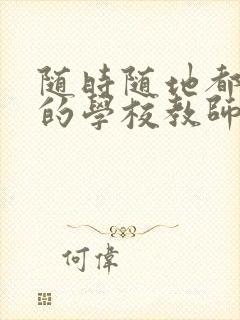 随時随地都
的學校教師
何偉